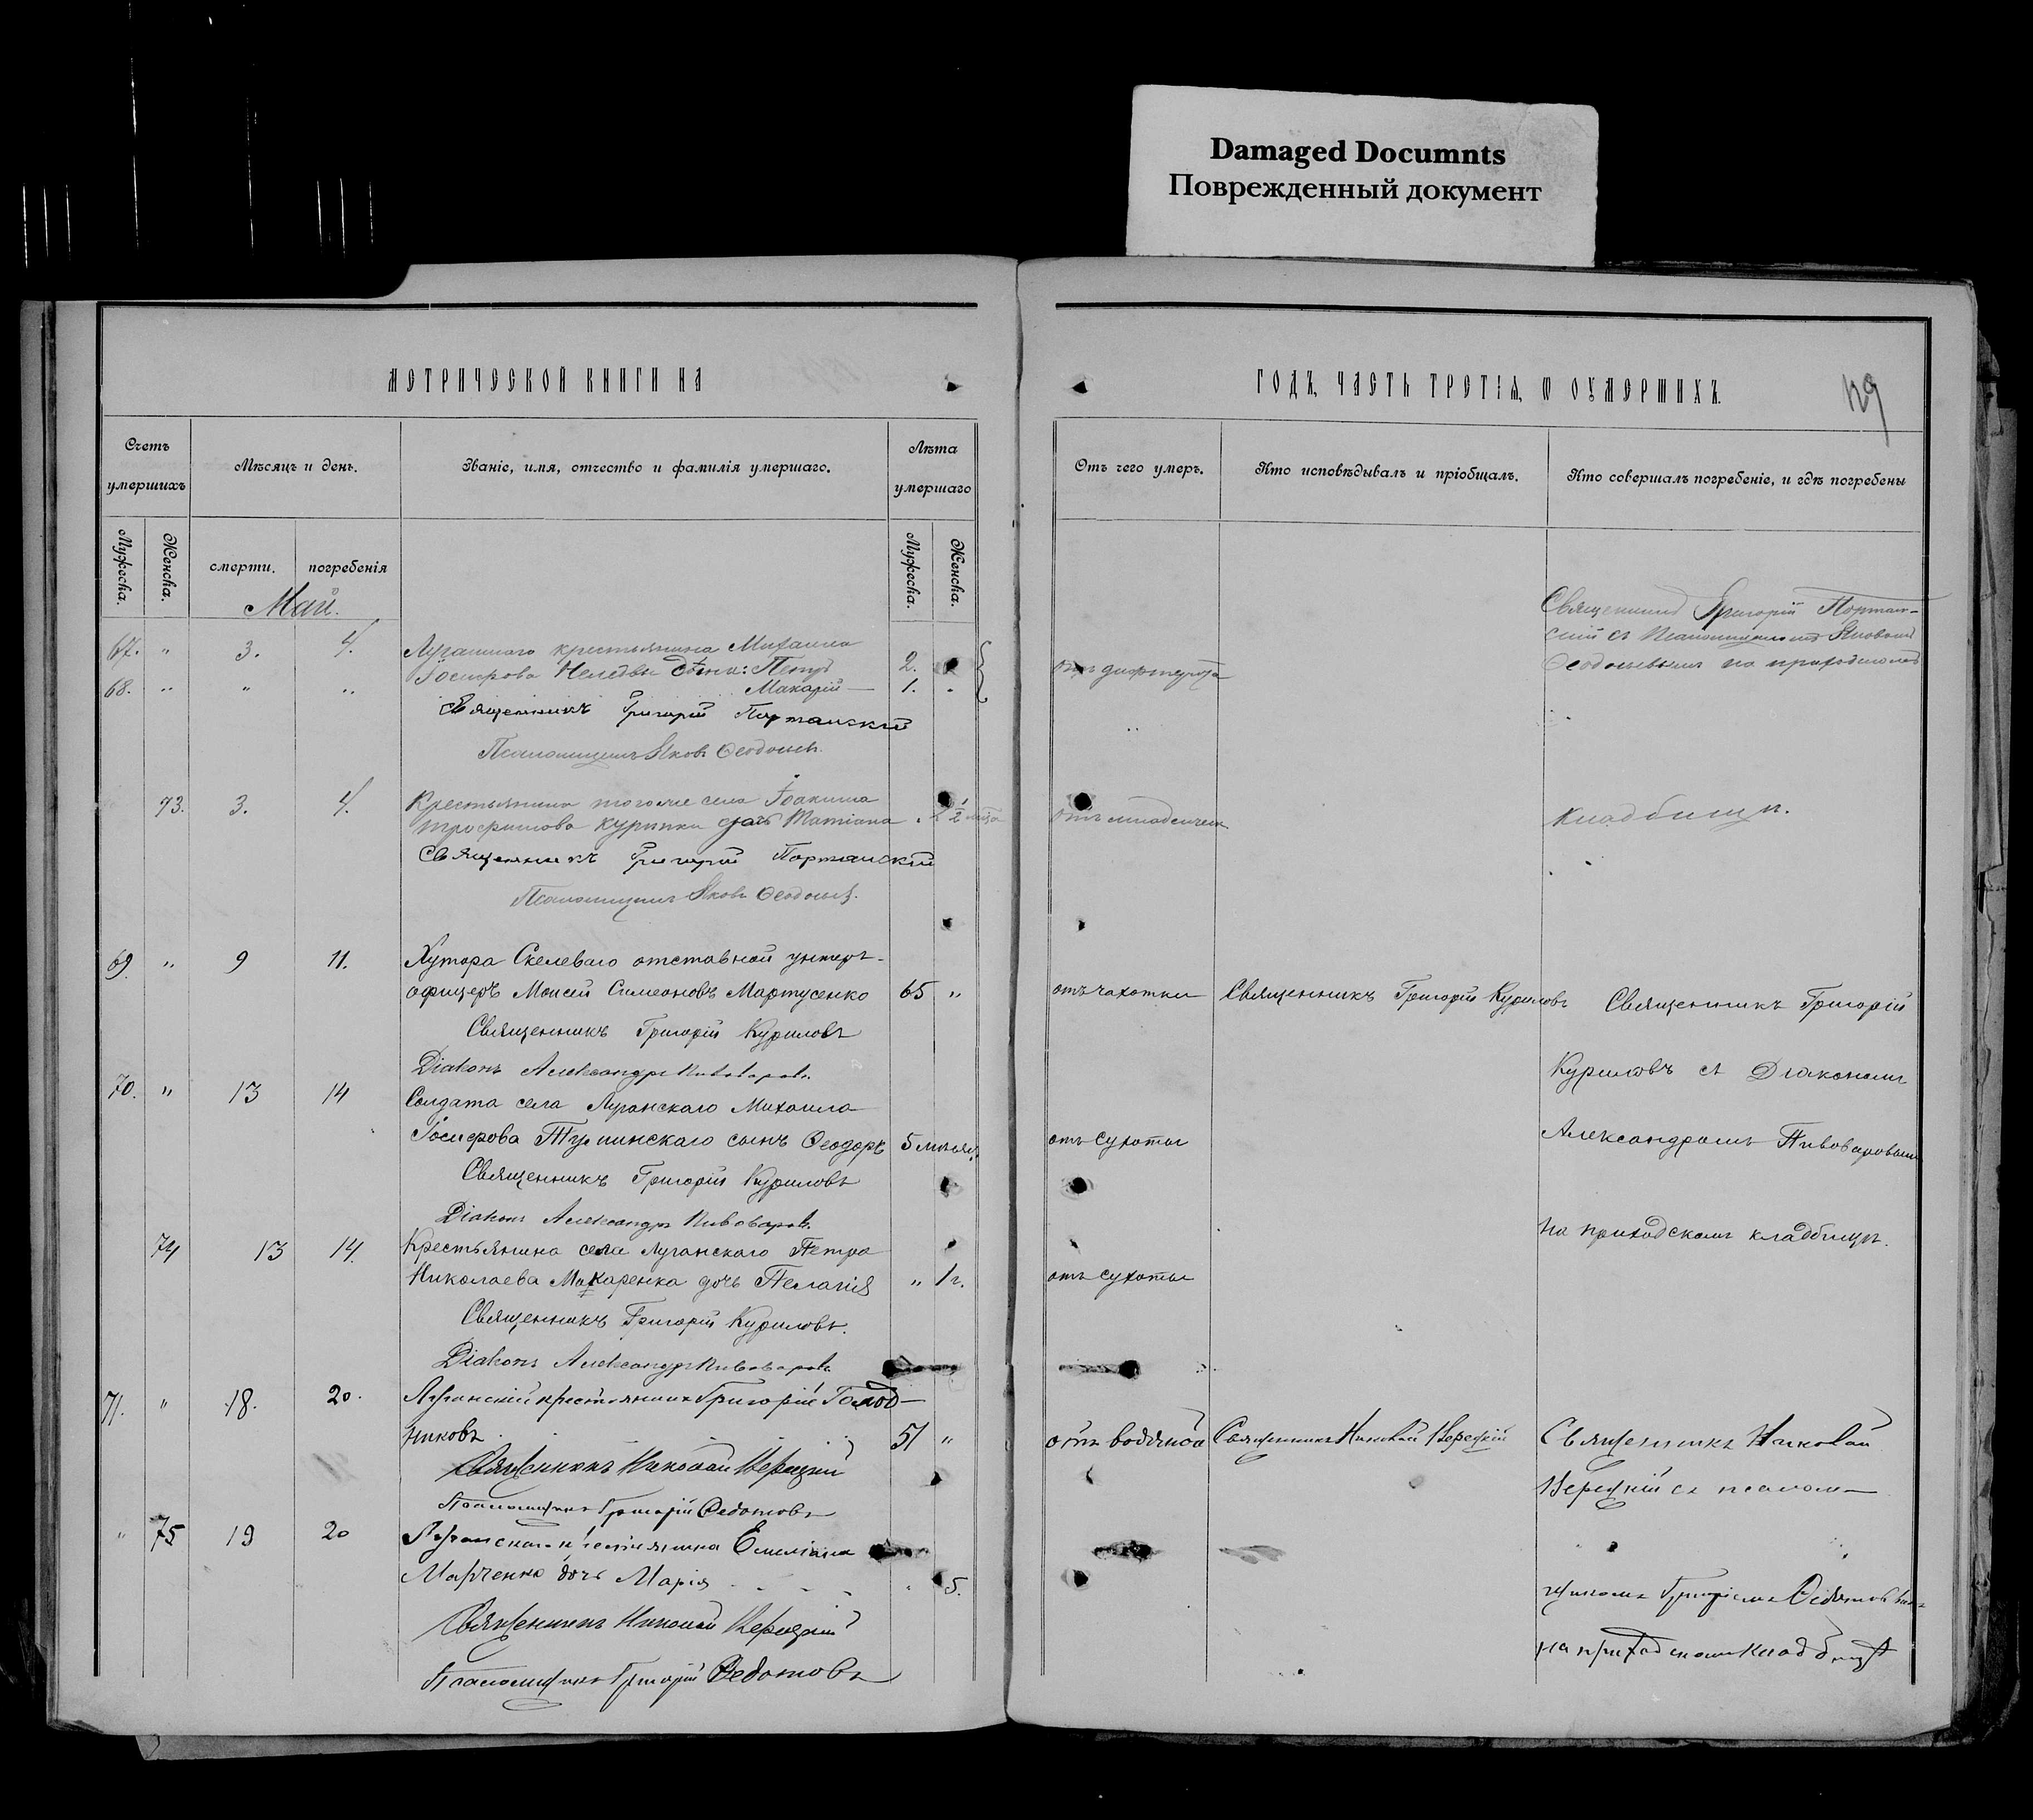 Damaged Documnts
Поврежденный документ
МЕТРИЧЕСКОЙ КНИГИ НА
ГОДЪ, ЧАСТЬ ТРЕТІЯ, Ѿ ОУМЕРШИХЪ.
129
Счетъ умершихъ
Мѣсяцъ и день.
Званіе, имя, отчество и фамилія умершаго.
Лѣта умершаго
Отъ чего умеръ.
Кто исповѣдывалъ и пріобщалъ.
Кто совершалъ погребеніе, и гдѣ погребены
Мужеска.
Женска.
смерти.
погребенія
Мужеска.
Женска.
Май.
Священникъ Григорій Портан-
67. " 3. 4. Луганскаго крестьянина Михаила
скій съ Псаломщикомъ Яковомъ
дѣти: Петръ 2.
отъ дифтерита
Ѳеодосьевымъ на приходскомъ
68. " " " Макарій — 1.
Священникъ Григорій Портанскій
Псаломщикъ Яковъ Ѳеодосьев.
73. 3. 4. Крестьянина тогоже села Іоакима
Трофимова дочь Татіана 1/2
отъ младенческ
кладбищѣ.
Священникъ Григорій Портанскій
Псаломщикъ Яковъ Ѳеодосьев.
69. " 9 11. Хутора Скелеваго отставной унтеръ-
офицеръ Моисей Симеоновъ Мартусенко 65 "
отъ чахотки
Священникъ Григорій Куриловъ
Священникъ Григорій
Священникъ Григорій Куриловъ
Діаконъ Александръ Пивоваровъ
Куриловъ съ Діакономъ
70. " 13 14 Солдата села Луганскаго Михаила
сынъ Ѳеодоръ 5 мѣсяц.
отъ сухоты
Александромъ Пивоваровымъ
Священникъ Григорій Куриловъ
Діаконъ Александръ Пивоваровъ.
на приходскомъ кладбищѣ.
74 13 14. Крестьянина села Луганскаго Петра
Николаева Макаренка дочь Пелагія " 1 г.
отъ сухоты
Священникъ Григорій Куриловъ.
Діаконъ Александръ Пивоваровъ
71. " 18. 20. Луганскій крестьянинъ Григорій Голод-
никовъ 51 "
отъ водяной
Священникъ Николай
Священникъ Николай
съ псалом-
Священникъ Николай
Псаломщикъ Григорій Ѳедотовъ
" 75 19 20 Луганскаго крестьянина Емеліана
Марченко дочь Марія 5.
щикомъ Григоріемъ Ѳедотовымъ
Священникъ Николай
на приходскомъ кладбищѣ
Псаломщикъ Григорій Ѳедотовъ